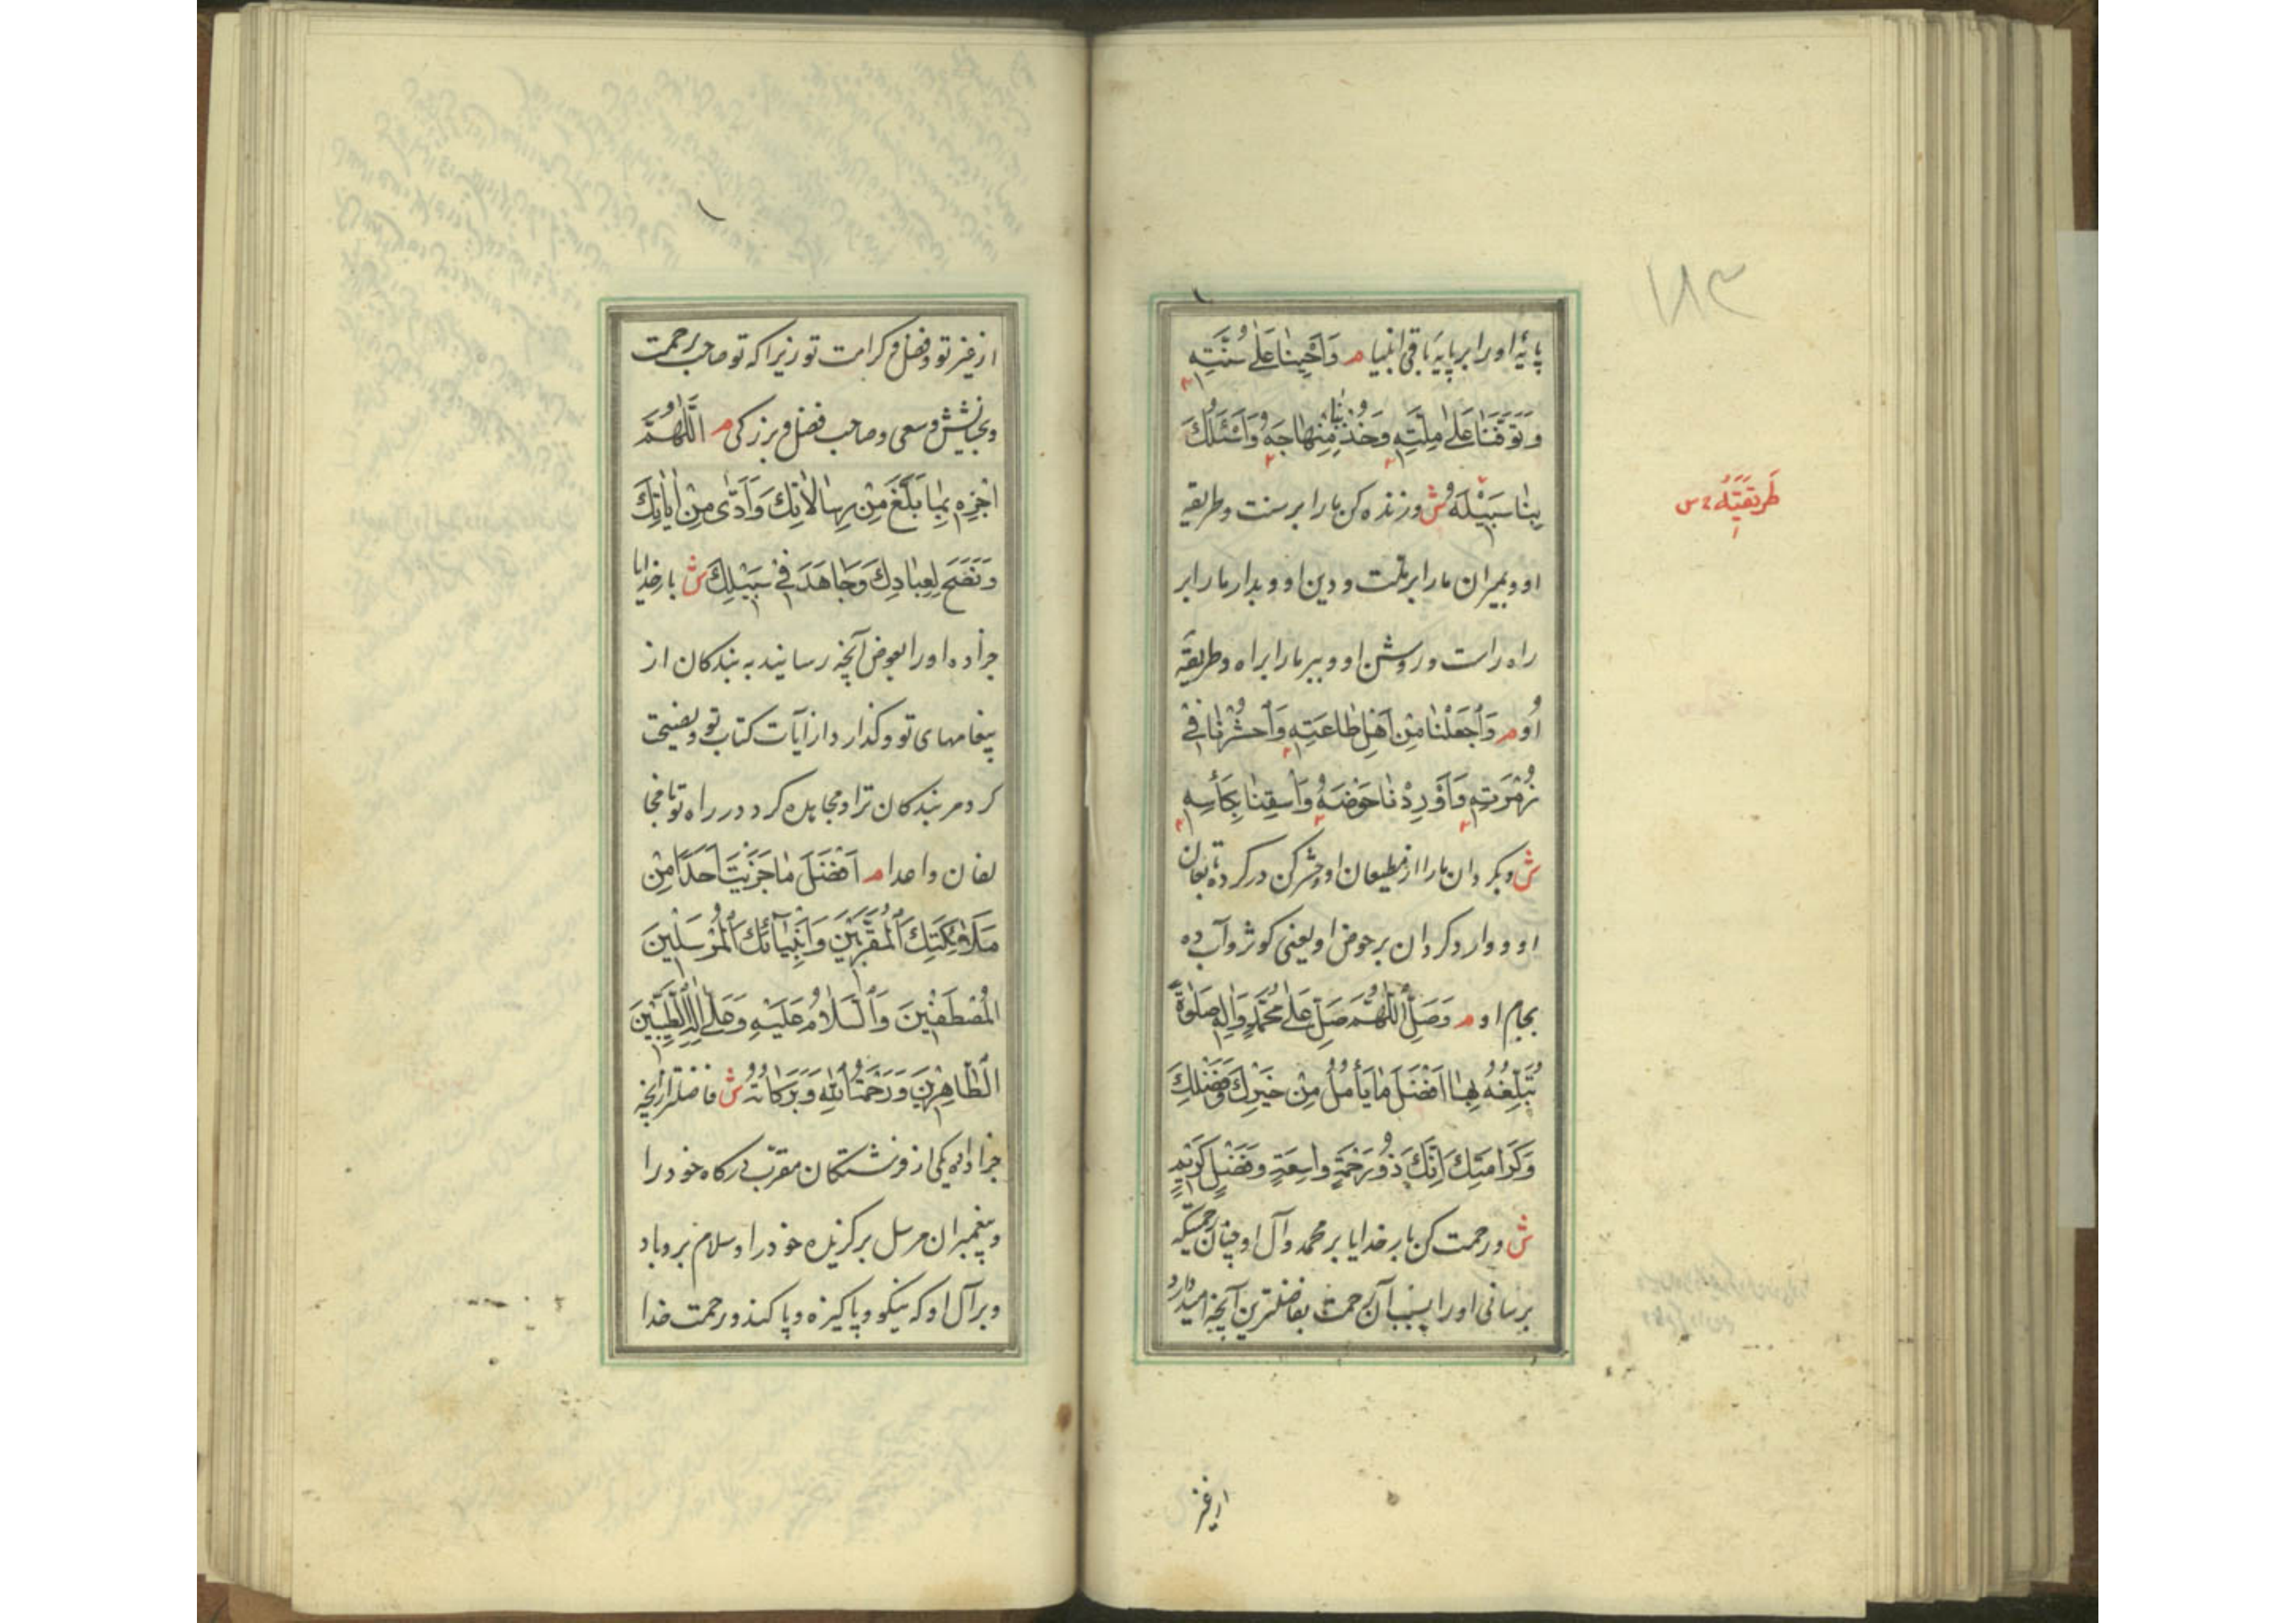 ۱۸۳
پایهٔ او را بر پایهٔ باقی انبیا م وَاَحْیِنا عَلٰی سُنَّتِهِ
وَتَوَفَّنا عَلٰی مِلَّتِهِ وَخُذْ بِنا مِنْهاجَهُ وَاسْئَلُكْ
بِنا سَبیْلَهُ ش و زنده کن ما را بر سنت و طریقه
طَریقَتَهُ س
او و بمیران ما را بر ملت و دین او و بدار ما را بر
راه راست و روشن او و ببر ما را براه و طریقهٔ
او م وَاجْعَلْنا مِنْ اَهْلِ طاعَتِهِ وَاحْشُرْنا فِیْ
زُمْرَتِهِ وَاَوْرِدْنا حَوْضَهُ وَاسْقِنا بِکَأْسِهِ
ش و بکردان ما را از مطیعان او و حشر کن در کرده تابعان
او و وارد کردان بر حوض او یعنی کوثر و آب ده
بجام او م وَصَلِّ اللّٰهُمَّ صَلِّ عَلٰی مُحَمَّدٍ وَاٰلِهِ صَلٰوةً
تُبَلِّغُهُ بِها اَفْضَلَ مٰا یَأْمُلُ مِنْ خَیْرِكَ وَفَضْلِكَ
وَکَرامَتِكَ اِنَّكَ ذُو رَحْمَةٍ واسِعَةٍ وَفَضْلٍ کَرِیْمٍ
ش و رحمت کن بار خدایا بر محمد و آل او چنان رحمتیکه
برسانی او را بسبب آن رحمت بفاضلترین آنچه امیدارد
از غیر
از غیر تو و فضل و کرامت تو زیرا که تو صاحب رحمت
و بخشایش وسعی و صاحب فضل و بزرکی م اَللّٰهُمَّ
اجْزِهِ بِما بَلَّغَ مِنْ رِسٰالاتِكَ وَاَدّٰی مِنْ اٰیاتِكَ
وَنَصَحَ لِعِبادِكَ وَجاهَدَ فِیْ سَبیْلِكَ ش بار خدایا
جزا ده او را بعوض آنچه رسانید به بندکان از
پیغامهای تو و کذارد از آیات کتاب تو و نصیحت
کرد مر بندکان ترا و مجاهده کرد در راه تو با مخا
لفان و اعدا م اَفْضَلَ ما جَزَیْتَ اَحَدًا مِنْ
مَلٰائِکَتِكَ الْمُقَرَّبِیْنَ وَاَنْبِیٰائِكَ الْمُرْسَلِیْنَ
الْمُصْطَفَیْنَ وَالسَّلامُ عَلَیْهِ وَعَلٰی اٰلِهِ الطَّیِّبِیْنَ
الطّاهِرِیْنَ وَرَحْمَةُ اللّٰهِ وَبَرَکاتُهُ ش فاضلتر از آنچه
جزا دادی یکی از فرشتکان مقرب درکاه خود را
و پیغمبران مرسل برکزیده خود را و سلام بر و باد
و بر آل او که نیکو و پاکیزه و پاکند و رحمت خدا